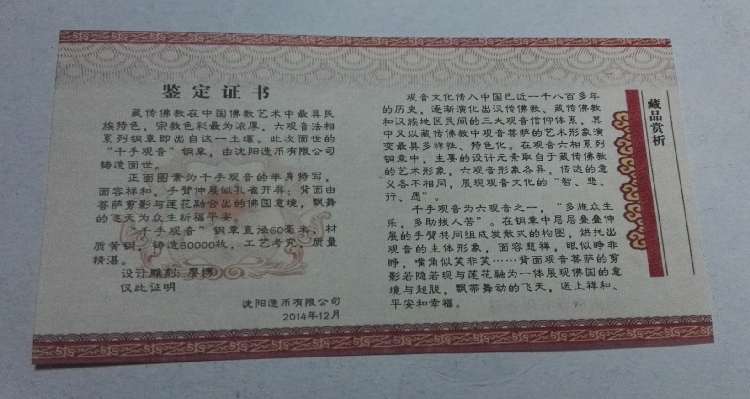 鉴定证书
藏传佛教在中国佛教艺术中最具民
族特色，宗教色彩最为浓厚，六观音法相
系列铜章即出自这一土壤。此次面世的
“千手观音”铜章，由沈阳造币有限公司
铸造面世。
正面图案为千手观音的半身特写，
面容祥和，手臂伸展似孔雀开屏；背面由
菩萨剪影与莲花融合出的佛国意境，飘舞
的飞天为众生祈福平安。
“千手观音”铜章直径60毫米，材
质黄铜，铸造60000枚，工艺考究，质量
精湛。
设计雕刻：廖博
仅此证明
沈阳造币有限公司
2014年12月
藏品赏析
观音文化传入中国已近一千八百多年
的历史，逐渐演化出汉传佛教、藏传佛教
和汉族地区民间的三大观音信仰体系，其
中又以藏传佛教中观音菩萨的艺术形象演
变最具多样性、特色化。在观音六相系列
铜章中，主要的设计元素取自于藏传佛教
的艺术形象，六观音形象各异，传达的意
义各不相同，展现观音文化的“智、悲、
行、愿”。
千手观音为六观音之一，“多施众生
乐，多助拔人苦”。在铜章中层层叠叠伸
展的手臂共同组成发散式的构图，烘托出
观音的主体形象，面容慈祥，眼似睁非
睁，嘴角似笑非笑……背面观音菩萨的剪
影若隐若现与莲花融为一体展现佛国的意
境与超脱，飘带舞动的飞天，送上祥和、
平安和幸福。